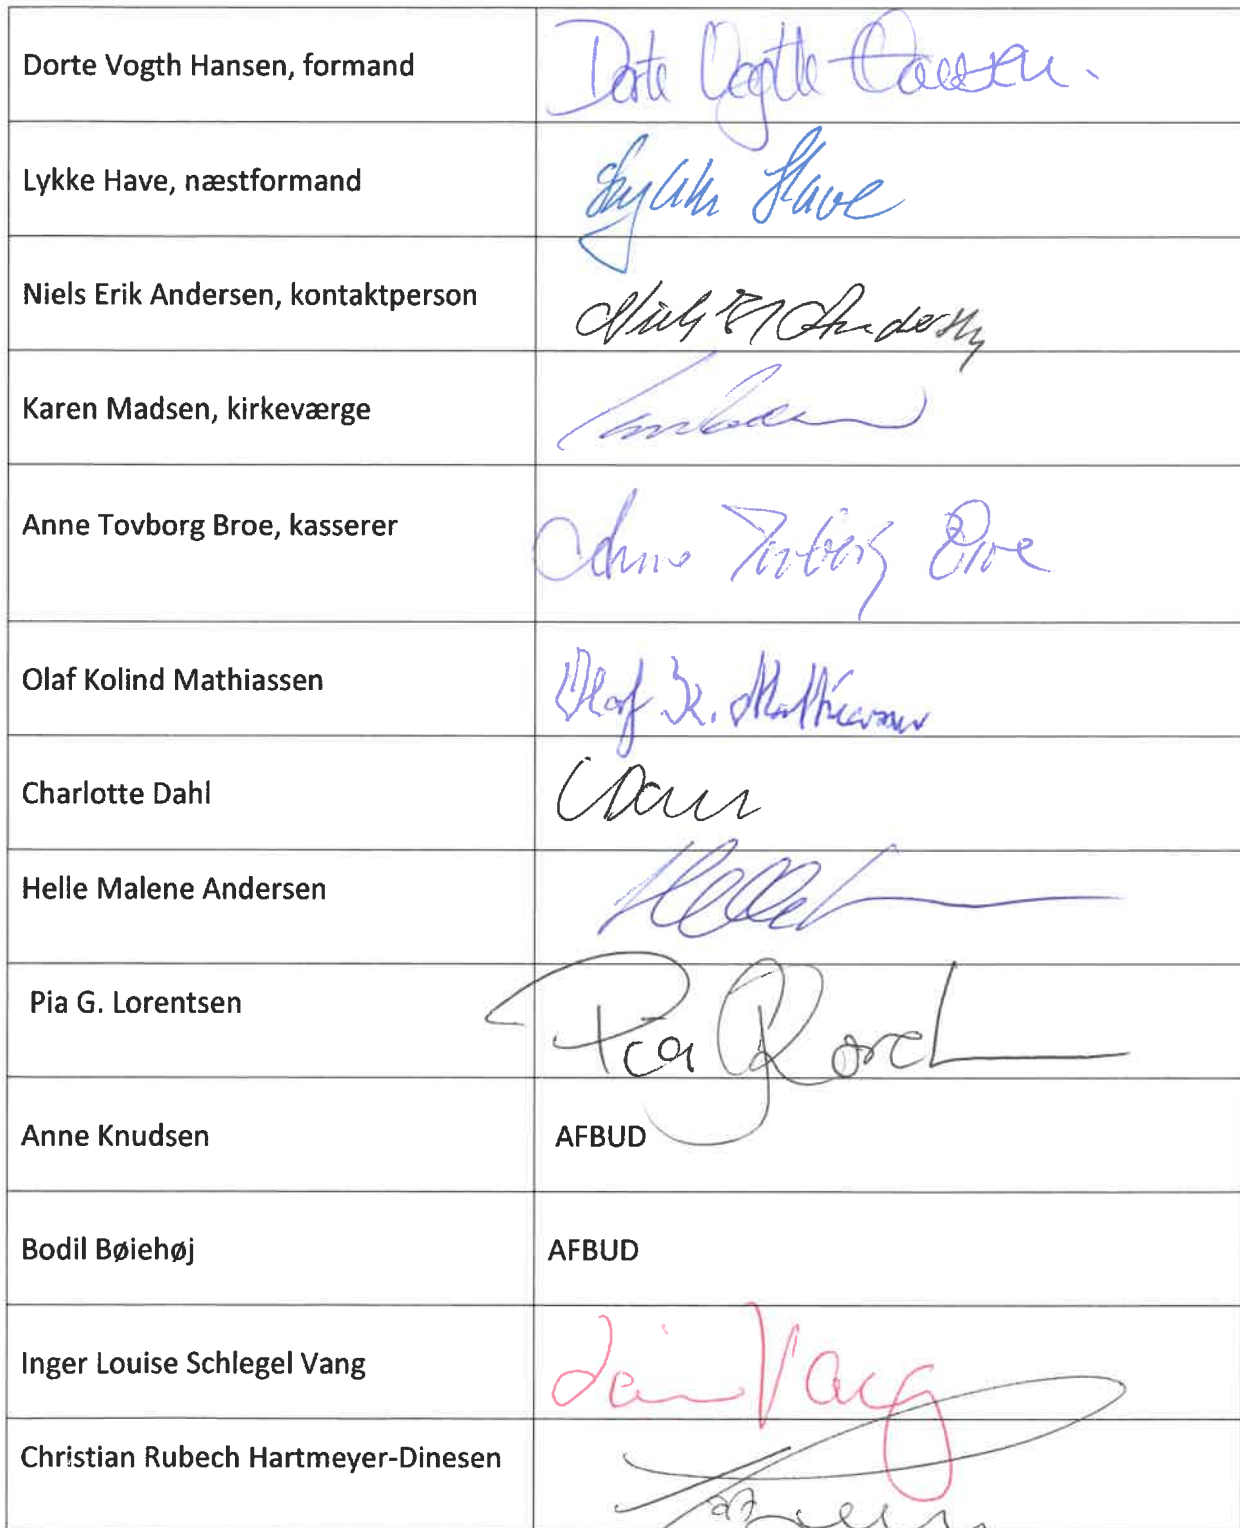 Dorte Vogth Hansen, formand
Dorte Vogth Hansen.
Lykke Have, næstformand
Lykke Have
Niels Erik Andersen, kontaktperson
Niels E Andersen
Karen Madsen, kirkeværge
Anne Tovborg Broe, kasserer
Anne Tovborg Broe
Olaf Kolind Mathiassen
Olaf K. Mathiassen
Charlotte Dahl
Helle Malene Andersen
Helle
Pia G. Lorentsen
Pia G Lorent
Anne Knudsen
AFBUD
Bodil Bøiehøj
AFBUD
Inger Louise Schlegel Vang
Vang
Christian Rubech Hartmeyer-Dinesen